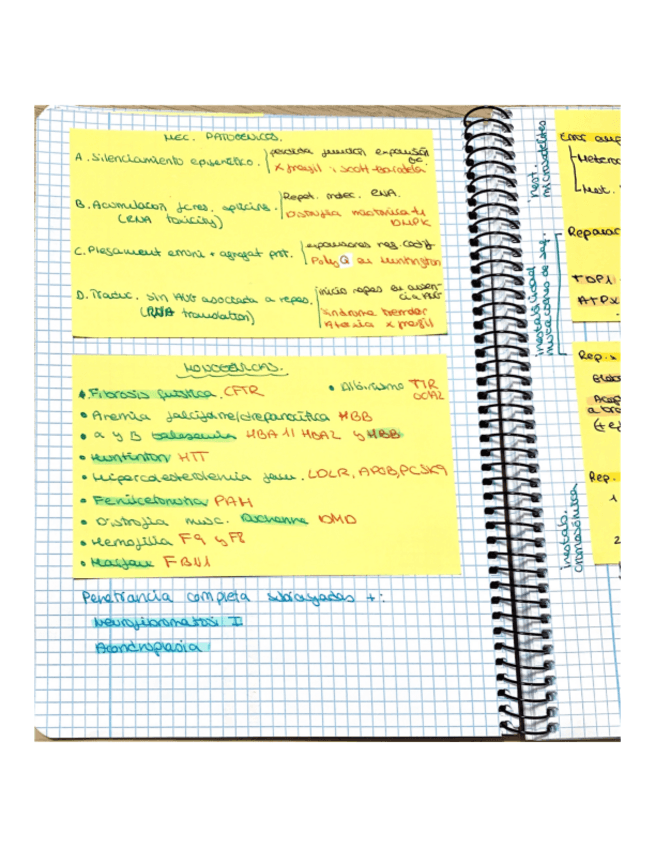 MEC. PATOGENICOS.
A. Silenciamiento epigenético.
perdida función, expansión
GC.
X fragil i
B. Acumulacion
(RNA toxicity)
Repet. RNA.
Distrofia miotonica t1
DMPK
C. Plegament + agregat prot.
expansiones reg codif
PolyQ en Huntington
D. Traduc. sin AUG asociada a repes.
(RNA translation)
inicio repes en
Sindrome tremdor
Ataxia x fragil
MONOGÉNICAS.
Fibrosis quistica. CFTR
• Albinismo TYR
OCA2
• Anemia HBB
• α y B talasemia HBA1 i HBA2 y HBB
• Huntinton HTT
• Hipercolesterolemia fam. LDLR, APOB, PCSK9
• Fenilcetonuria PAH
• Distrofia musc. Duchenne DMD
• Hemofilia F9 y F8
• Marfan FBN1
Penetrancia completa subrayadas +:
Neurofibromatosi I
Acondroplasia
inest.
microsatelites
inestabilidad
inestab.
cromosómica
Error
Heteroc
Mut.
Reparac
TDP1
ATPX
Rep.
(+ ej
Rep.
1
2